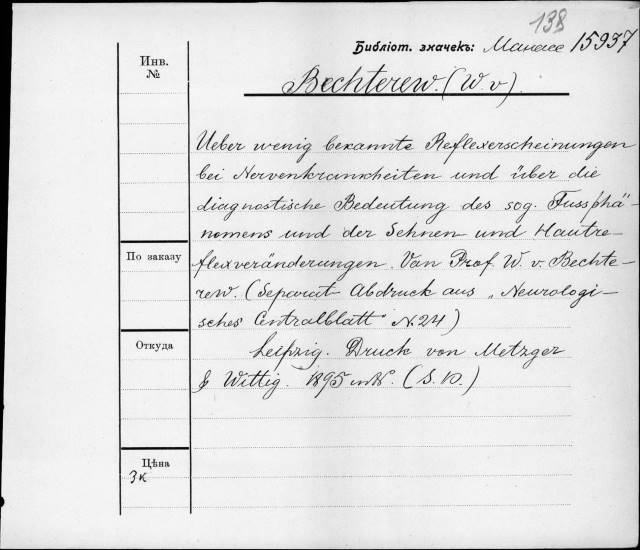 138
Библіот. значекъ: Манасе 15937
Инв.
№
Bechterew. (W. v).
Ueber wenig bekannte Reflexerscheinungen
bei Nervenkrankheiten und über die
diagnostische Bedeutung des sog. Fussphä-
nomens und der Sehnen und Hautre-
По заказу
flexveränderungen. Van Prof. W. v. Bechte-
rew. (Separat-Abdruck aus „Neurologi-
sches Centralblatt" N. 24)
Откуда
Leipzig. Druck von Metzger
& Wittig. 1895 (S. 10.)
Цѣна
3к